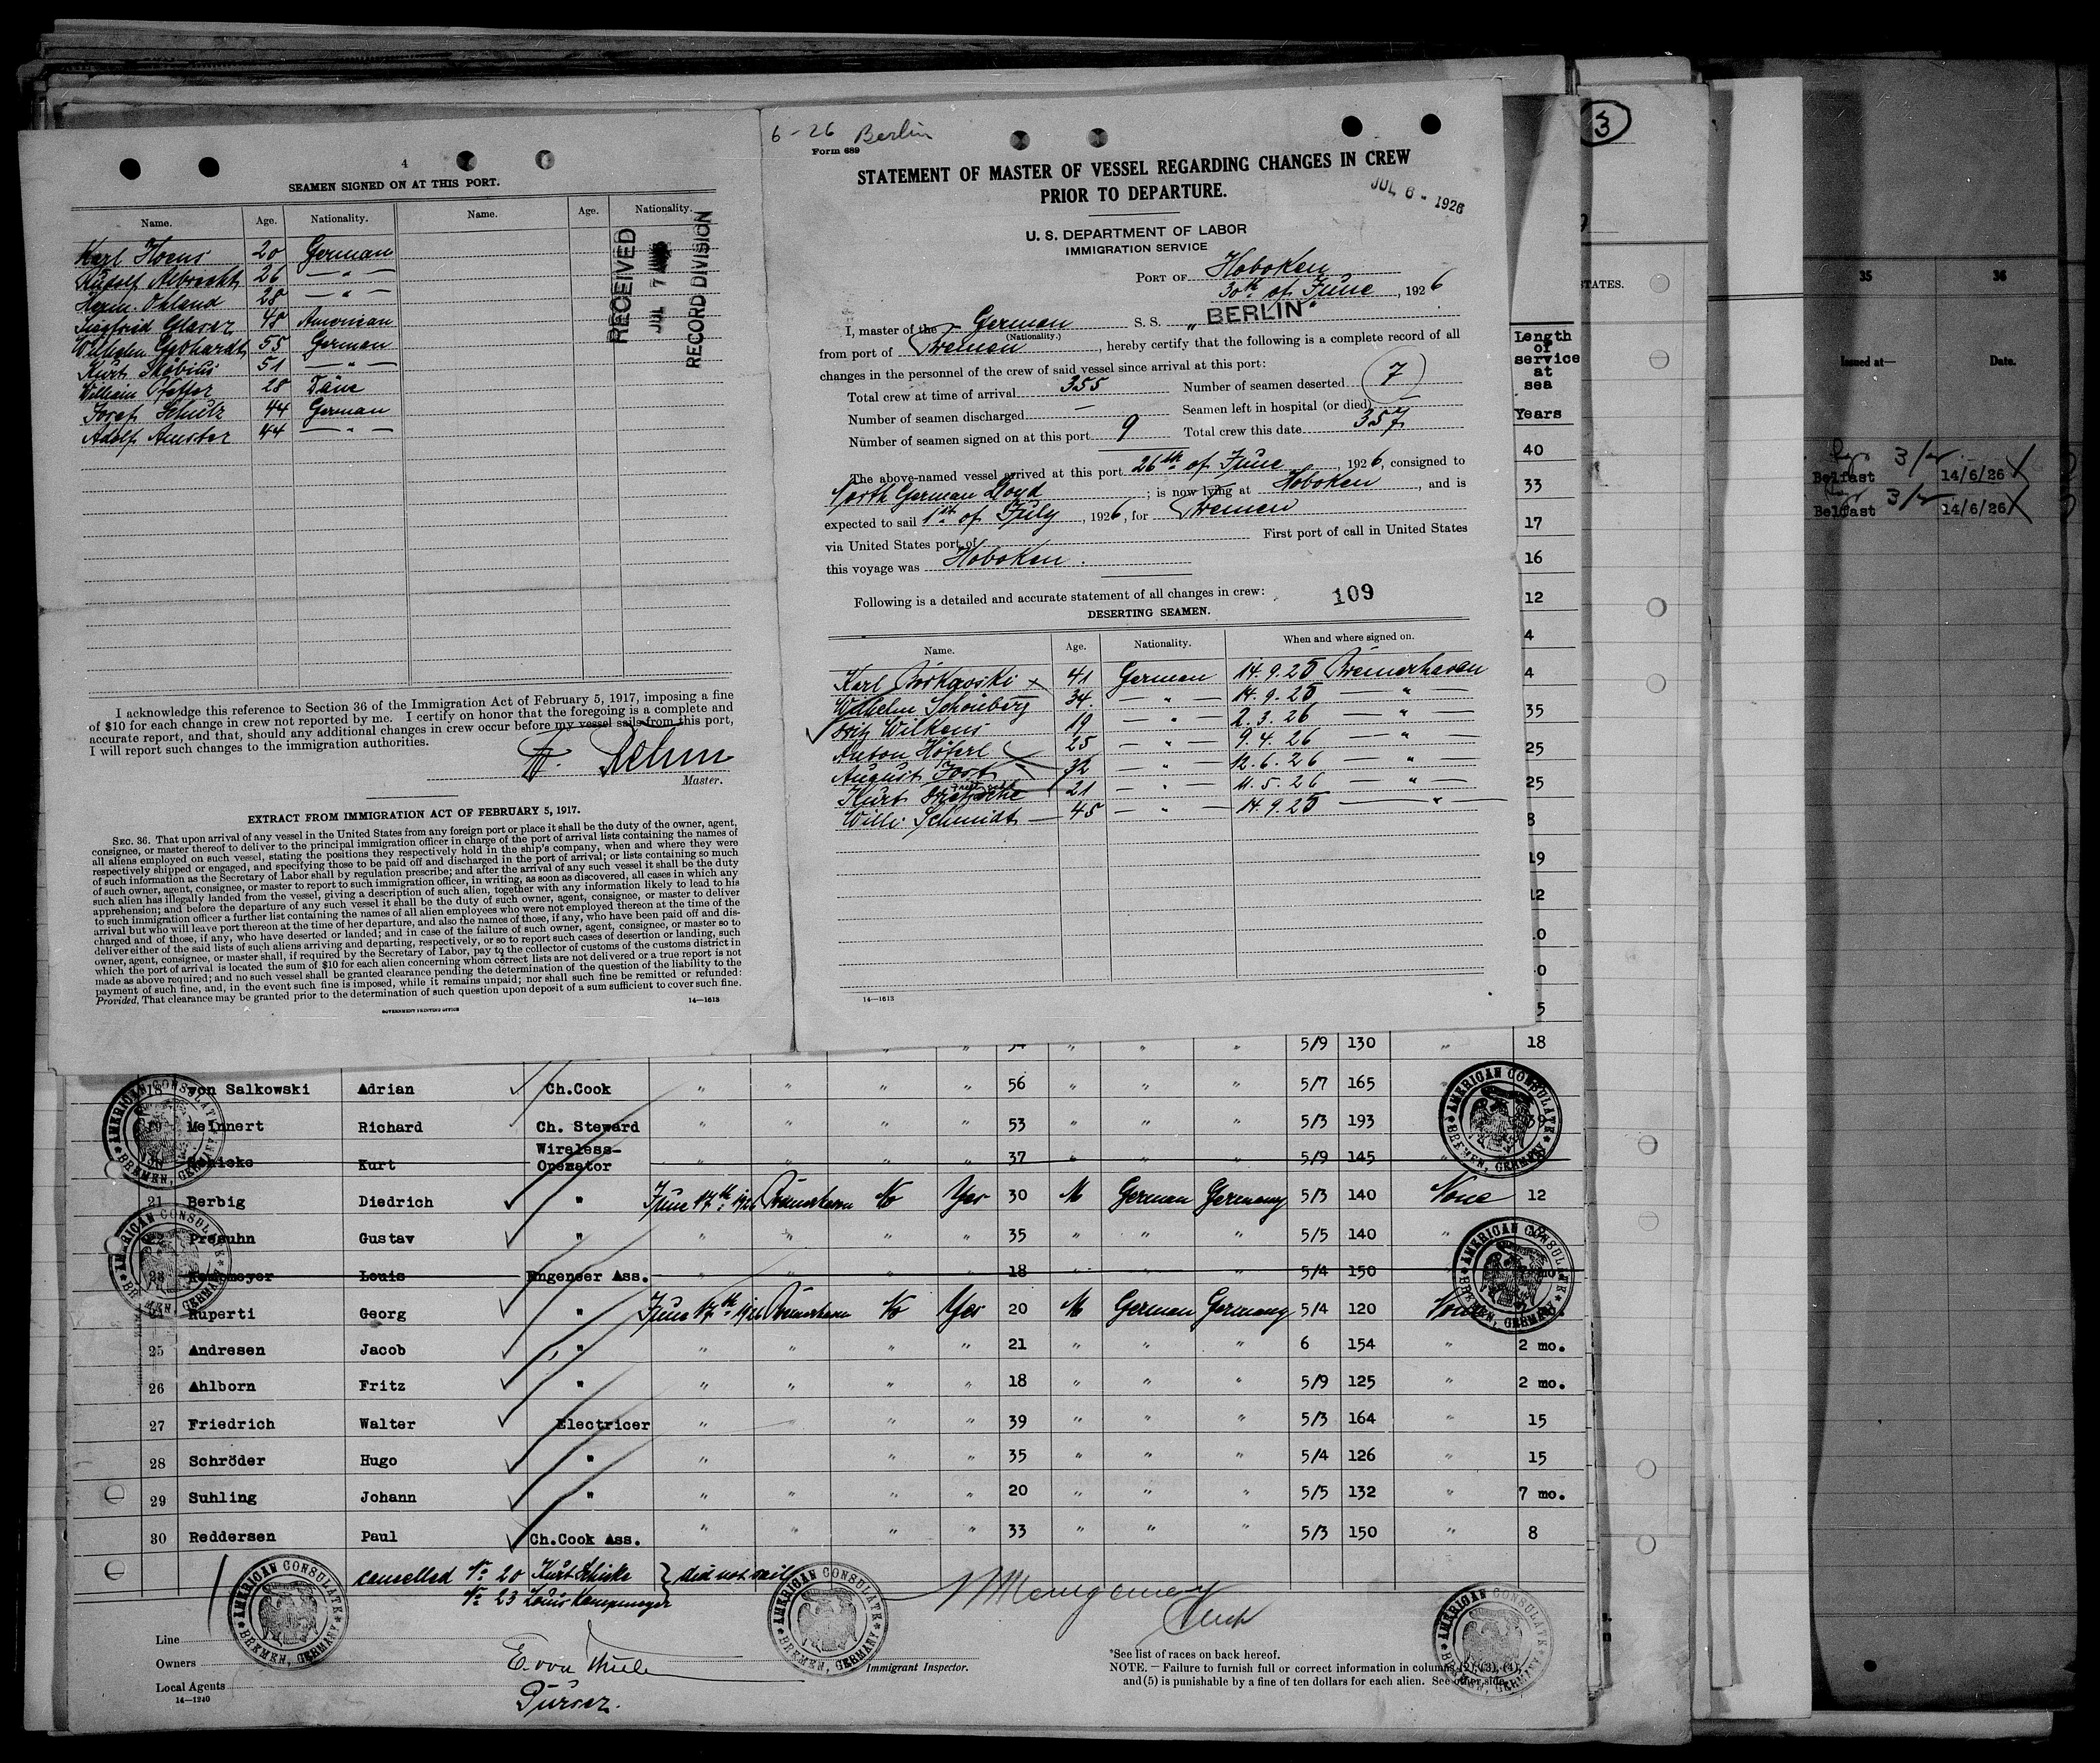 4
SEAMEN SIGNED ON AT THIS PORT.
Name. Age. Nationality. Name. Age. Nationality.
Karl 20 German
Rudolf Albrecht 26 — " —
Herm. Ohland 28 — " —
Siegfried Glaser 48 American
Wilhelm Gebhardt 55 German
Kurt Möbius 51 — " —
Wilhelm Pfeffer 28 Däne
Josef Schulz 44 German
Adolf Amster 44 — " —
RECEIVED
JUL 7
RECORD DIVISION
I acknowledge this reference to Section 36 of the Immigration Act of February 5, 1917, imposing a fine
of $10 for each change in crew not reported by me. I certify on honor that the foregoing is a complete and
accurate report, and that, should any additional changes in crew occur before my vessel sails from this port,
I will report such changes to the immigration authorities.
Rehm
Master.
EXTRACT FROM IMMIGRATION ACT OF FEBRUARY 5, 1917.
SEC. 36. That upon arrival of any vessel in the United States from any foreign port or place it shall be the duty of the owner, agent,
consignee, or master thereof to deliver to the principal immigration officer in charge of the port of arrival lists containing the names of
all aliens employed on such vessel, stating the positions they respectively hold in the ship's company, when and where they were
respectively shipped or engaged, and specifying those to be paid off and discharged in the port of arrival; or lists containing so much
of such information as the Secretary of Labor shall by regulation prescribe; and after the arrival of any such vessel it shall be the duty
of such owner, agent, consignee, or master to report to such immigration officer, in writing, as soon as discovered, all cases in which any
such alien has illegally landed from the vessel, giving a description of such alien, together with any information likely to lead to his
apprehension; and before the departure of any such vessel it shall be the duty of such owner, agent, consignee, or master to deliver
to such immigration officer a further list containing the names of all alien employees who were not employed thereon at the time of the
arrival but who will leave port thereon at the time of her departure, and also the names of those, if any, who have been paid off and dis-
charged and of those, if any, who have deserted or landed; and in case of the failure of such owner, agent, consignee, or master so to
deliver either of the said lists of such aliens arriving and departing, respectively, or so to report such cases of desertion or landing, such
owner, agent, consignee, or master shall, if required by the Secretary of Labor, pay to the collector of customs of the customs district in
which the port of arrival is located the sum of $10 for each alien concerning whom correct lists are not delivered or a true report is not
made as above required; and no such vessel shall be granted clearance pending the determination of the question of the liability to the
payment of such fine, and, in the event such fine is imposed, while it remains unpaid; nor shall such fine be remitted or refunded:
Provided, That clearance may be granted prior to the determination of such question upon deposit of a sum sufficient to cover such fine.
14—1613
GOVERNMENT PRINTING OFFICE
6-26 Berlin
Form 689
STATEMENT OF MASTER OF VESSEL REGARDING CHANGES IN CREW
PRIOR TO DEPARTURE.
JUL 6 - 1926
U. S. DEPARTMENT OF LABOR
IMMIGRATION SERVICE
PORT OF Hoboken
30th of June, 1926
I, master of the German S. S. "BERLIN"
(Nationality.)
from port of Bremen, hereby certify that the following is a complete record of all
changes in the personnel of the crew of said vessel since arrival at this port:
Total crew at time of arrival 355 Number of seamen deserted 7
Number of seamen discharged — Seamen left in hospital (or died) —
Number of seamen signed on at this port 9 Total crew this date 357
The above-named vessel arrived at this port 26th of June, 1926, consigned to
North German Lloyd; is now lying at Hoboken, and is
expected to sail 1st of July, 1926, for Bremen
via United States port of First port of call in United States
this voyage was Hoboken.
Following is a detailed and accurate statement of all changes in crew:
109
DESERTING SEAMEN.
Name. Age. Nationality. When and where signed on.
Karl 41 German 14.9.25 Bremerhaven
Wilhelm Schönberg 34 — " — 14.9.25 — " —
Fritz Wilkens 19 — " — 2.3.26 — " —
Anton Höferl 25 — " — 9.4.26 — " —
August Jost 32 — " — 12.6.26 — " —
Kurt 21 — " — 11.5.26 — " —
Willi Schmidt 45 — " — 14.9.25 — " —
14—1613
3
STATES.
Length
of
service
at
sea
Years
40
33
17
16
12
4
4
35
25
25
8
19
12
35 36
Issued at— Date.
Belfast 14/6/26
Belfast 14/6/26
" " 34 " " " 5/9 130 " 18
18 von Salkowski Adrian Ch.Cook " " " " 56 " " " 5/7 165
19 Meinnert Richard Ch. Steward " " " " 53 " " " 5/3 193
Schicke Kurt Wireless-Operator " " " " 37 " " " 5/9 145
21 Berbig Diedrich " June 17th 1926 Bremerhaven No Yes 30 M German Germany 5/3 140 None 12
Presuhn Gustav " " " " " 35 " " " 5/5 140 "
23 Kampmeyer Louis Engeneer Ass. " " " " 18 " " " 5/4 150 mo.
Ruperti Georg " June 17th 1926 Bremerhaven No Yes 20 M German Germany 5/4 120 None
25 Andresen Jacob " " " " " 21 " " " 6 154 " 2 mo.
26 Ahlborn Fritz " " " " " 18 " " " 5/9 125 " 2 mo.
27 Friedrich Walter Electricer " " " " 39 " " " 5/3 164 " 15
28 Schröder Hugo " " " " 35 " " " 5/4 126 " 15
29 Suhling Johann " " " " " 20 " " " 5/5 132 " 7 mo.
30 Reddersen Paul Ch.Cook Ass. " " " " 33 " " " 5/3 150 " 8
cancelled No 20 Kurt Schicke } did not sail
No 23 Louis Kampmeyer
AMERICAN CONSULATE
BREMEN, GERMANY
Line
Owners
Local Agents
14—1240
E. von Thülen
Purser.
Immigrant Inspector.
*See list of races on back hereof.
NOTE.—Failure to furnish full or correct information in columns (2), (3), (4),
and (5) is punishable by a fine of ten dollars for each alien. See other side.